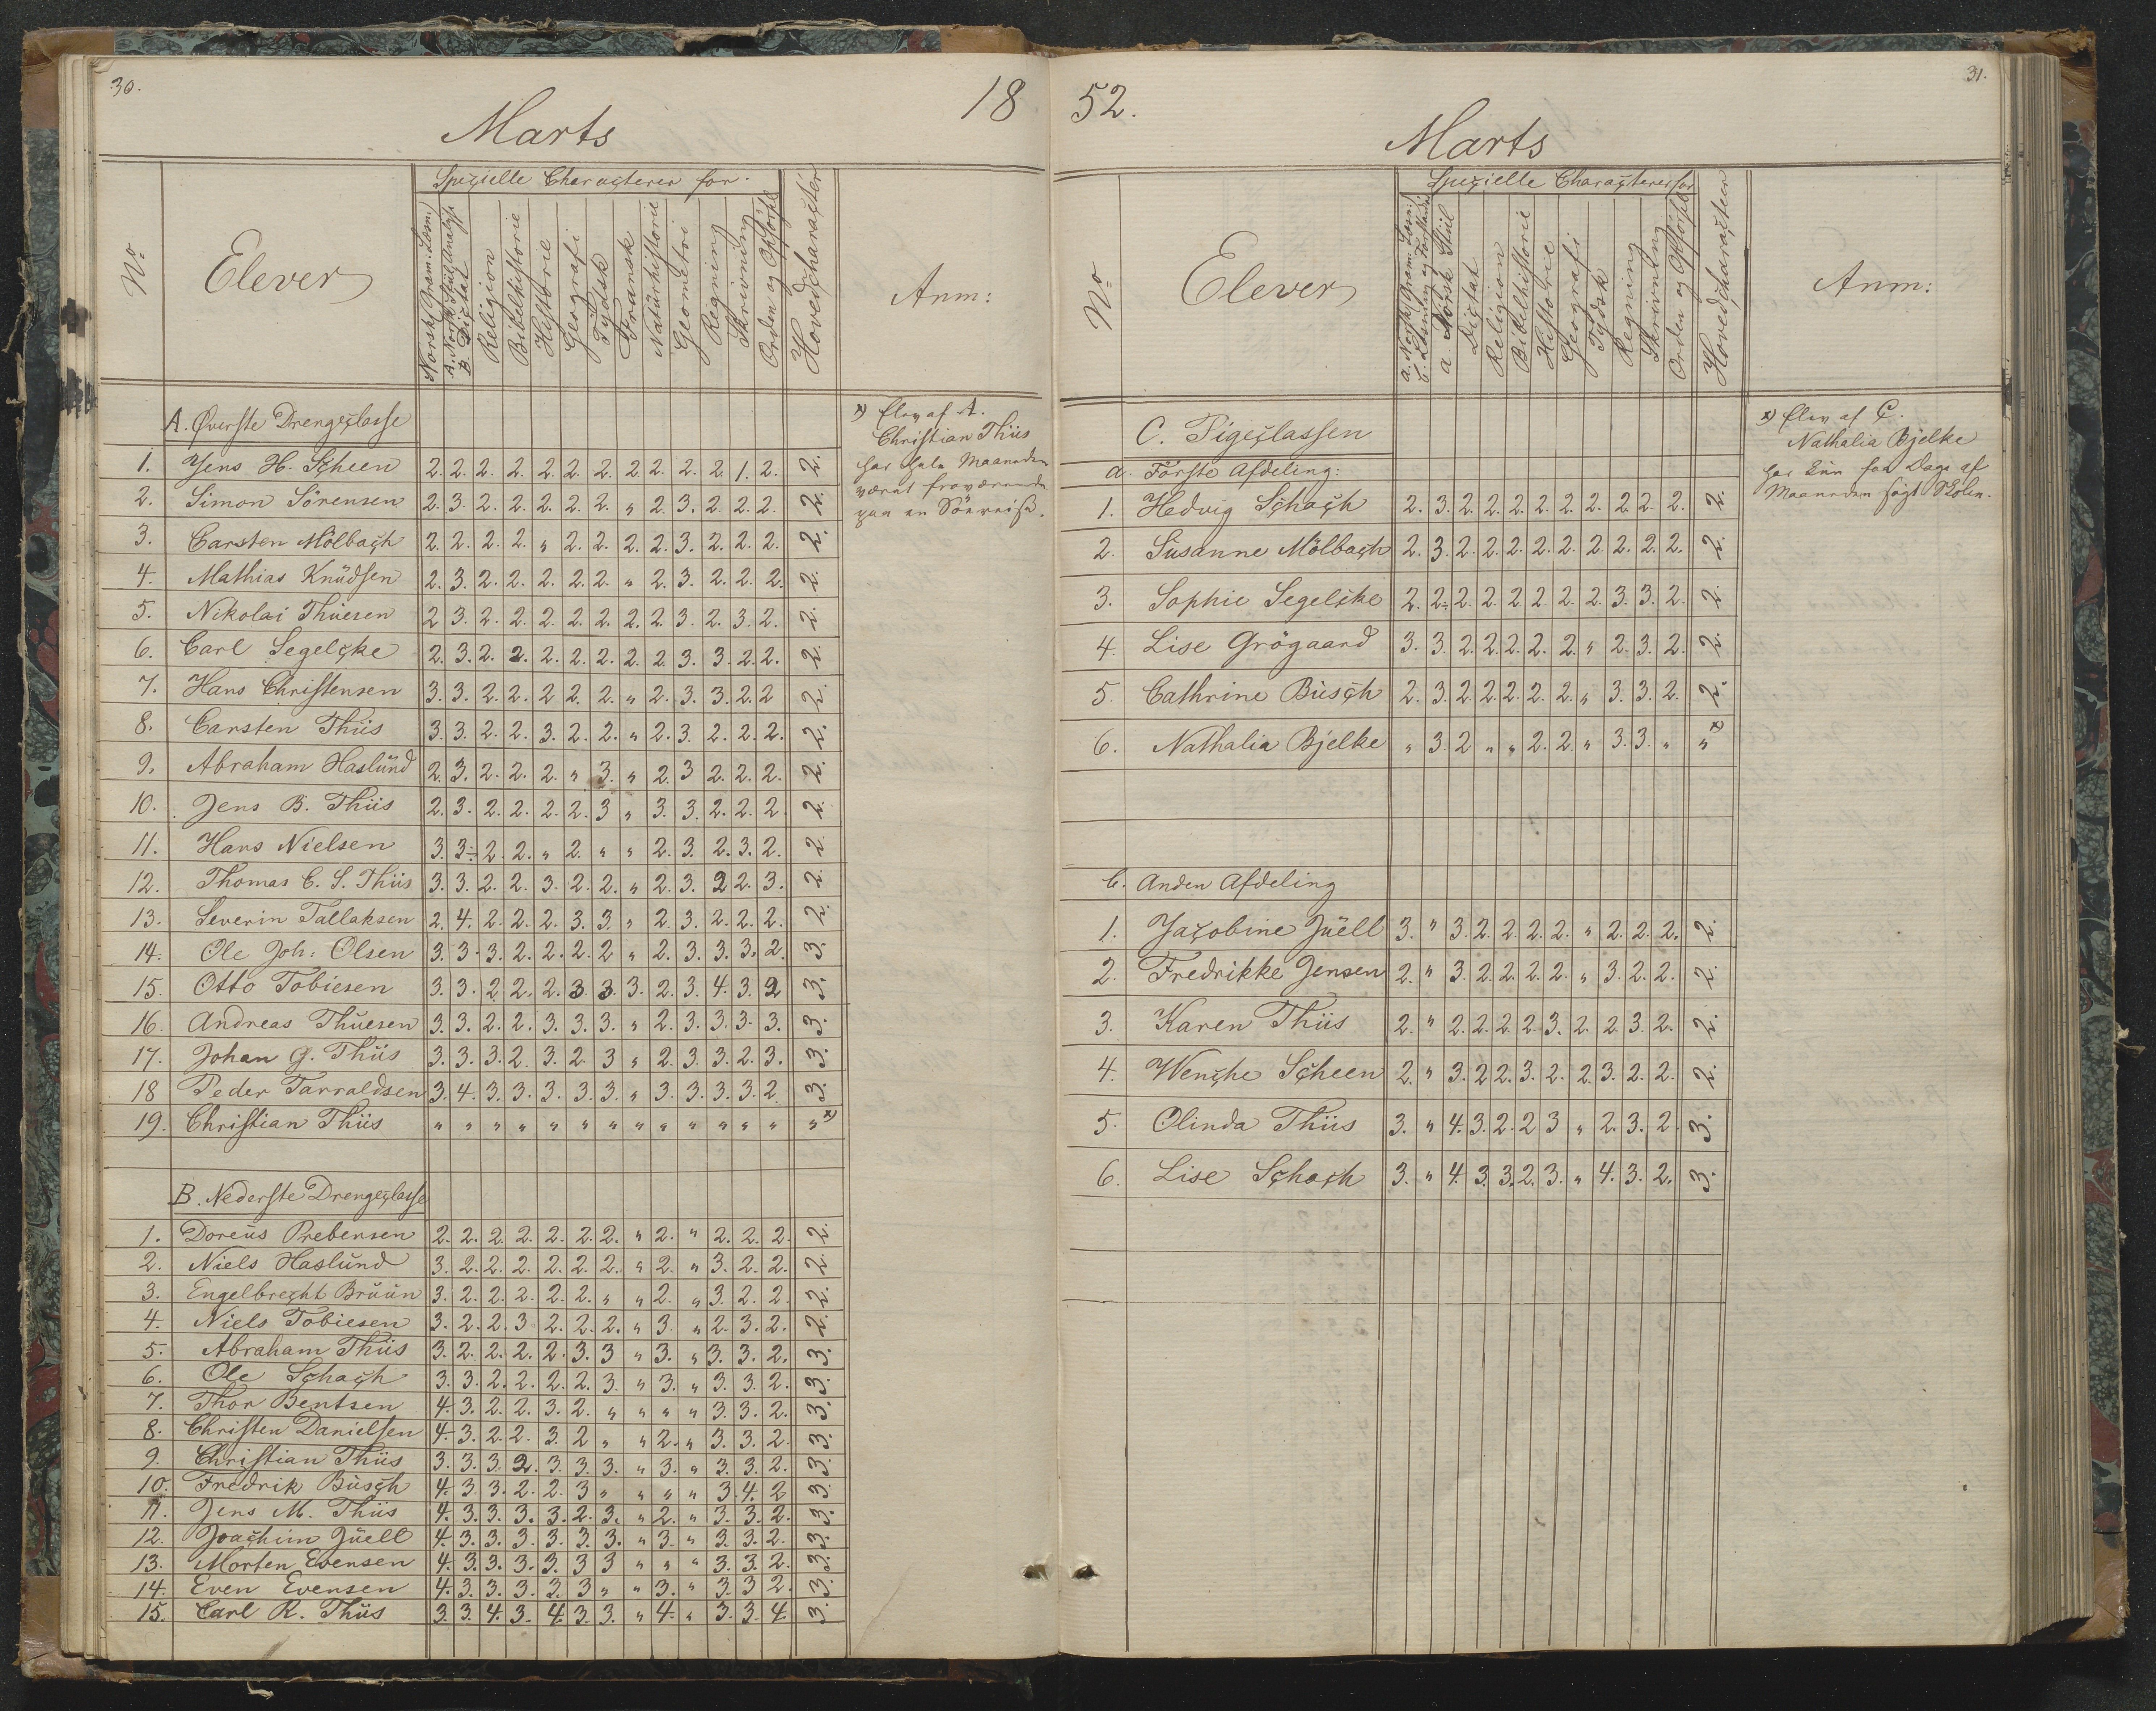 30.
18
Marts
No
Elever
Speçielle Characterer for.
Norsk, Gram: Læsn:
A. Norsk Stiil, Analyse
B. Diçtat
Religion
Bibelhistorie
Historie
Geografi
Tydsk
Fransk
Natürhistorie
Geometri
Regning
Skrivning
Orden og Opførsel
Hovedcharacter
Anm:
A. Øverste Drengeçlasse
1. Jens H. Scheen 2. 2. 2. 2. 2. 2. 2. 2. 2. 2. 2. 1. 2. 2.
2. Simon Sörensen 2. 3. 2. 2. 2. 2. 2. " 2. 3. 2. 2. 2. 2.
3. Carsten Mölbach 2. 2. 2. 2. " 2. 2. 2. 2. 3. 2. 2. 2. 2.
4. Mathias Knüdsen 2. 3. 2. 2. 2. 2. 2. " 2. 3. 2. 2. 2. 2.
5. Nikolai Thüesen 2 3. 2. 2. 2. 2. 2. 2. 2. 3. 2. 3. 2. 2.
6. Carl Segelcke 2. 3. 2. 2. 2. 2. 2. 2. 2. 3. 3. 2. 2. 2.
7. Hans Christensen 3. 3. 2. 2. 2 2. 2. " 2. 3. 3. 2. 2 2.
8. Carsten Thiis 3. 3. 2. 2. 3. 2. 2. " 2. 3. 2. 2. 2. 2.
9. Abraham Haslünd 2. 3. 2. 2. 2. " 3. " 2. 3 2. 2. 2. 2.
10. Jens B. Thiis 2. 3. 2. 2. 2. 2. 3 " 3. 3. 2. 2. 2. 2.
11. Hans Nielsen 3. 3÷ 2. 2. " 2. " " 2. 3. 2. 3. 2. 2.
12. Thomas C. S. Thiis 3. 3. 2. 2. 3. 2. 2. " 2. 3. 2 2. 3. 2.
13. Severin Tallaksen 2. 4. 2. 2. 2. 3. 3. " 2. 3. 2. 2. 2. 2.
14. Ole Joh: Olsen 3. 3. 3. 2. 2. 2. 2 " 2. 3. 3. 3. 2. 3.
15. Otto Tobiesen 3. 3. 2. 2. 2. 3. 3. 3. 2. 3. 4. 3. 2 3.
16. Andreas Thüesen 3. 3. 2. 2. 3. 3. 3. " 2. 3. 3. 3. 3. 3.
17. Johan G. Thiis 3. 3. 3. 2. 3. 2. 3 " 2. 3. 3. 2. 3. 3.
18 Peder Tarraldsen 3. 4. 3. 3. 3. 3. 3. " 3. 3. 3. 3. 2. 3.
19. Christian Thiis " " " " " " " " " " " " " " x)
x) Elev af A.
Christian Thiis
har hele Maaneden
været fraværende
paa en Söereise.
B. Nederste Drengeçlasse
1. Doreüs Prebensen 2. 2. 2. 2. 2. 2. 2. " 2. " 2. 2. 2. 2.
2. Niels Haslünd 3. 2. 2. 2. 2. 2. 2. " 2. " 3. 2. 2. 2.
3. Engelbrecht Brüün 3. 2. 2. 2. 2. 2. " " 2. " 3. 2. 2. 2.
4. Niels Tobiesen 3. 2. 2. 3 2. 2. 2. " 3. " 2. 3. 2. 2.
5. Abraham Thiis 3. 2. 2. 2. 2. 3. 3 " 3. " 3. 3. 2. 3.
6. Ole Schach 3. 3. 2. 2. 2. 2. 3. " 3. " 3. 3. 2. 3.
7. Thor Bentsen 4. 3. 2. 2. 3. 2. " " " " 3. 3. 2. 3.
8. Christen Danielsen 4. 3. 2. 2. 3. 2 " " 2. " 3. 3. 2. 3.
9. Christian Thiis 3. 3. 3. 2. 3. 3. 3. " 3. " 3. 3. 2. 3.
10. Fredrik Büsch 4. 3. 3. 2. 2. 3 " " " " 3. 4. 2 3.
11. Jens M. Thiis 4. 3. 3. 3. 3. 2. 3. " 2. " 3. 3. 2. 3.
12. Joachim Jüell 4. 3. 3. 3. 3. 3. 3. " 3. " 3. 3. 2. 3.
13. Morten Evensen 4. 3. 3. 3. 3. 3 3 " " " 3. 3. 2. 3.
14. Even Evensen 4. 3. 3. 3. 3. 3 " " 3. " 3. 3 2. 3.
15. Carl R. Thiis 3. 3. 4. 3. 4. 3. 3. " 4. " 3. 3. 4. 3.
52.
31.
Marts
No
Elever
Speçielle Characterer for
a. Norsk, Gram: Læsn:
b. Læsning og Forstand
a Norsk Stiil
Diçtat
Religion
Bibelhistorie
Historie
Geografi
Tydsk
Regning
Skrivning
Orden og Opførsel
Hovedcharacter
Anm:
C. Pigeçlassen
a. Förste Afdeling:
1. Hedvig Schach 2. 3. 2. 2. 2. 2. 2. 2. 2. 2. 2. 2.
2. Susanne Mölbach 2. 3. 2. 2. 2. 2. 2. 2. 2. 2. 2. 2.
3. Sophie Segelcke 2. 2÷ 2. 2. 2. 2. 2. 2. 3. 3. 2. 2.
4. Lise Grögaard 3. 3. 2. 2. 2. 2. 2. " 2. 3. 2. 2.
5. Cathrine Büsch 2. 3. 2. 2. 2. 2. 2. " 3. 3. 2. 2.
6. Nathalia Bjelke " 3. 2 " " 2. 2. " 3. 3. " " x)
x) Elev af C.
Nathalia Bjelke
har kün faa Dage af
Maaneden søgt Skolen.
b. Anden Afdeling
1. Jacobine Jüell 3. " 3. 2. 2. 2. 2. " 2. 2. 2. 2.
2. Fredrikke Jensen 2. " 3. 2. 2. 2. 2. " 3. 2. 2. 2.
3. Karen Thiis 2. " 2. 2. 2. 2. 3. 2. 2. 3. 2. 2.
4. Wenche Scheen 2. " 3. 2 2. 3. 2. 2. 3. 2. 2. 2.
5. Olinda Thiis 3. " 4. 3. 2. 2 3 " 2. 3. 2. 3.
6. Lise Schach 3. " 4. 3. 3. 2. 3. " 4. 3. 2. 3.